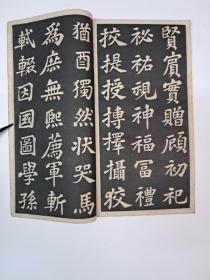 賢賓實贈顧初祀
祕祐視神福冨禮
投提授搏擇攝狡
猶酋獨然狀哭馬
為庶無熙薦軍斬
載輟因國圖學孫